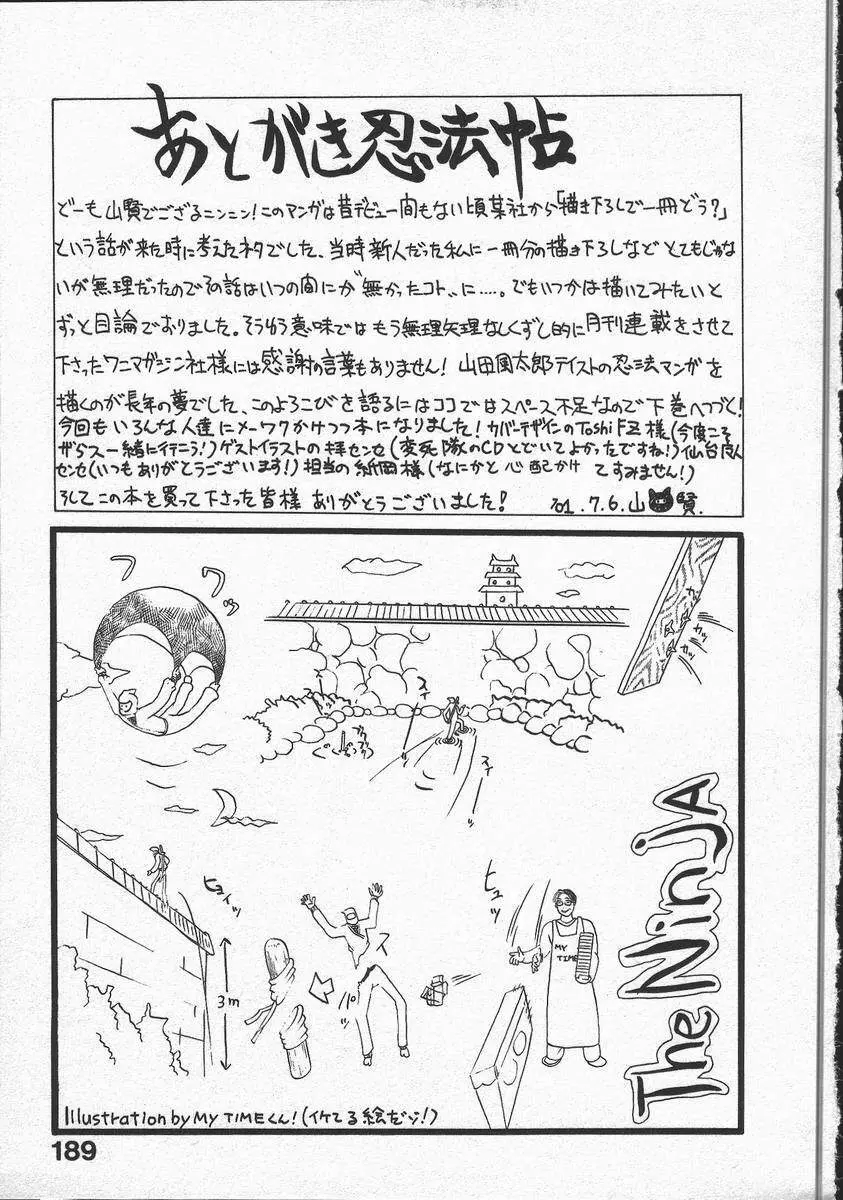 あとがき忍法帖
どーも山賢でござるニンニン！このマンガは昔デビュー間もない頃某社から「描き下ろしで一冊どう？」
という話が来た時に考えたネタでした、当時新人だった私に一冊分の描き下ろしなどとてもじゃな
いが無理だったのでその話はいつの間にか〝無かったコト〟に……。でもいつかは描いてみたいと
ずっと目論でおりました。そうゆう意味ではもう無理矢理なしくずし的に月刊連載をさせて
下さったワニマガジン社様には感謝の言葉もありません！山田風太郎テイストの忍法マンガを
描くのが長年の夢でした、このよろこびを語るにはココではスペース不足なので下巻へつづく！
今回もいろんな人達にメーワクかけつつ本になりました！カバーデザインのToshi F.Z様(今度こそ
一緒に行こう！)ゲストイラストの拝センセ(変死隊のCDとどいてよかったですね！)仙台
センセ(いつもありがとうございます！)担当の紙岡様(なにかと心配かけてすみません！)
そしてこの本を買って下さった皆様ありがとうございました！ '01.7.6.山賢.
フワッ
カッ
カッ
スイ
スイ
ヒョイッ
ヒュッ
ス
パ°
3m
MY
TIME
The Ninja
Illustration by MY TIMEくん！(イケてる絵だゾ！)
189